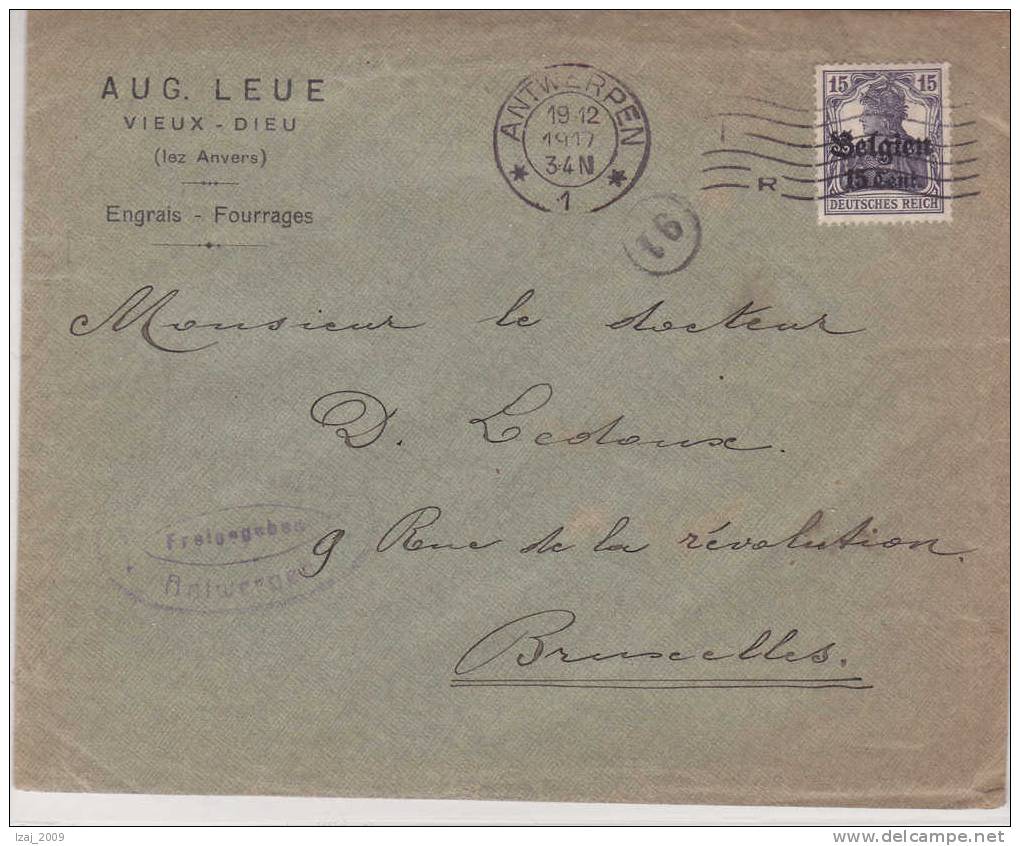 AUG. LEUE
VIEUX - DIEU
(lez Anvers)
Engrais - Fourrages
ANTWERPEN
19.12
1917
3-4N
* 1 *
15 15
Belgien
15 Cent.
DEUTSCHES REICH
R
91
Monsieur le docteur
D. Ledoux.
9 Rue de la révolution.
Bruxelles.
Freigegeben
Antwerpen
Izaj_2009
www.delcampe.net